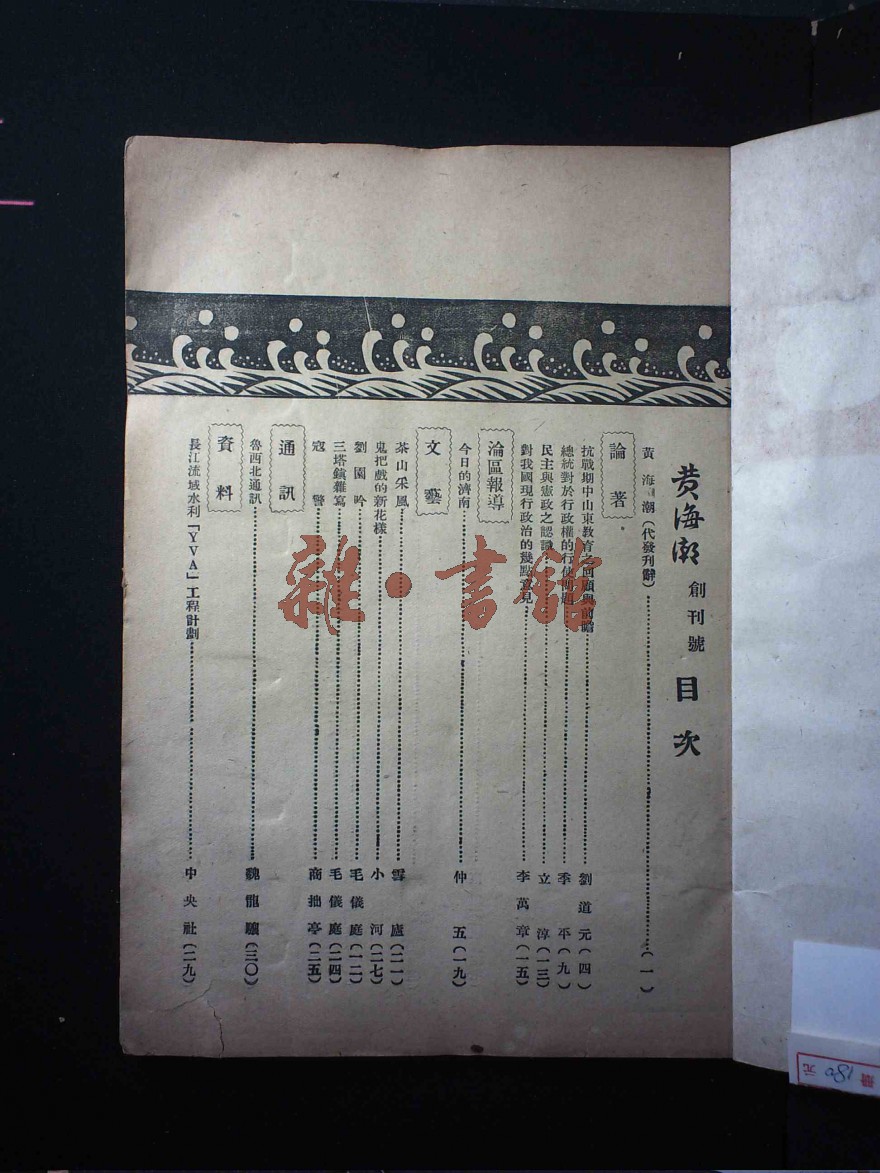 黄海潮 創刊號 目次
黃海潮(代發刊辭)(一)
論著
抗戰期中山東教育之回顧與前瞻 劉道元(四)
總統對於行政權的行使問題 季平(九)
民主與憲政之認識 立淳(一三)
對我國現行政治的幾點意見 李萬章(一五)
淪區報導
今日的濟南 仲五(一九)
文藝
茶山采風 雪廬(二一)
鬼把戲的新花樣 小河(二七)
劉園吟 毛儀庭(一二)
三塔鎮雜寫 毛儀庭(二四)
寇警 商拙亭(二五)
通訊
魯西北通訊 魏龍驤(三〇)
資料
長江流域水利「YVA」工程計劃 中央社(二九)
雜·書館
册 180 元